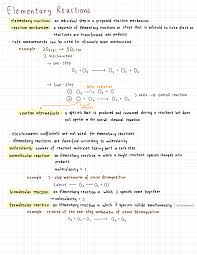 Elementary Reactions
elementary reactions: an individual step in a proposed reaction mechanism
reaction mechanism: a sequence of elementary reactions or steps that is believed to take place as
reactants are transformed into products
rate measurements can be used to eliminate some mechanisms
example 2O₃(g) → 3O₂(g)
2 mechanisms
→ one-step
O₃ + O₃ → O₂ + O₂ + O₂
→ two-step
① O₃ → O₂ + O
② O + O₃ → O₂ + O₂
adds → overall reaction
reaction intermediate: a species that is produced and consumed during a reaction but does
not appear in the overall chemical equation
stoichiometric coefficients are not used for elementary reactions
elementary reactions are identified according to molecularity
molecularity: number of reactant molecules taking part in each step
unimolecular reaction: an elementary reaction in which a single reactant species changes into
products
molecularity = 1
example: 2-step mechanism of ozone decomposition
O₃ → O₂ + O
bimolecular reaction: an elementary reaction in which 2 species come together
→ molecularity = 2
termolecular reaction: an elementary reaction in which 3 species collide simultaneously
example: reverse of the one-step mechanism of ozone decomposition
O₂ + O₂ + O₂ → O₃ + O₃